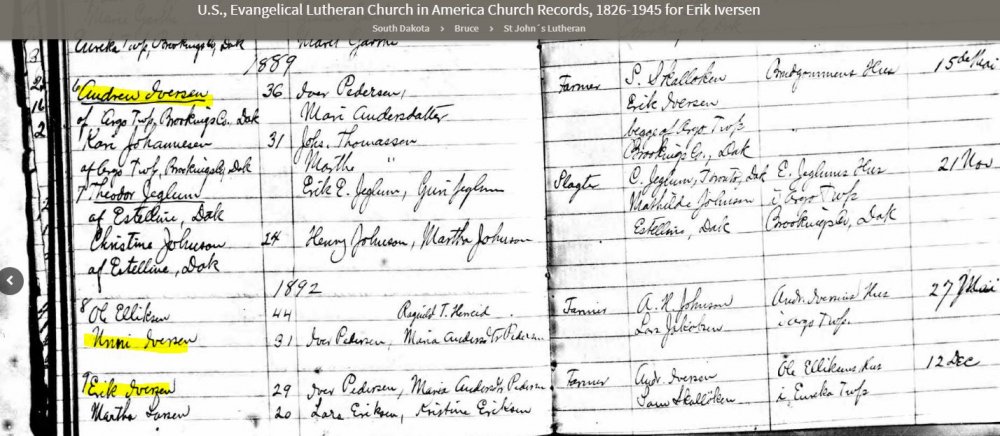 U.S., Evangelical Lutheran Church in America Church Records, 1826-1945 for Erik Iversen
South Dakota > Bruce > St John´s Lutheran
Eureka Twp, Brookings Co, Dak
1889
6 Andrew Iversen 36 Iver Pedersen, Farmer S. Skalloken Brudgommens Hus 15de Mai
of Argo Twp, Brookings Co. Dak Mari Andersdatter Erik Iversen
Kari Johannesen 31 Johs. Thomassen begge of Argo Twp
of Argo Twp, Brookings Co, Dak Marthe " Brookings Co., Dak
7 Theodor Jeglum Erik E. Jeglum, Guri Jeglum Slagter C. Jeglum, Toronto, Dak E. Jeglums Hus 21 Nov
of Estelline, Dak Mathilde Johnson i Argo Twp
Christine Johnson 24 Henry Johnson, Martha Johnson Estelline, Dak Brookings Co, Dak
of Estelline, Dak
1892
8 Ole Elliksen 44 T. Farmer A. H. Johnson Andr. Iversens Hus 27
Unni Iversen 31 Iver Pedersen, Maria Pedersen Lars Jakobsen i Argo Twp.
9 Erik Iversen 29 Iver Pedersen, Maria Pedersen Farmer Andr. Iversen Ole Elliksens Hus 12 Dec
Martha Larsen 20 Lars Eriksen, Kristine Eriksen Skalloken i Eureka Twp